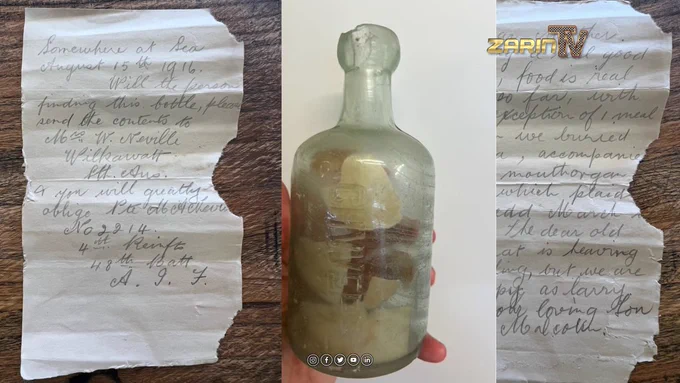 Somewhere at Sea
August 15th 1916.
Will the person
finding this bottle, please
send the contents to
Mrs W. Neville
Wilkawatt
Sth. Aus.
& you will greatly
oblige Pte
No 2214.
4th Reinft
48th Batt
A. I. F.
ZARIN TV
good
food is real
so far, with
exception of 1 meal
we buried
accompanied
mouthorgan
which plaid
March
The dear old
is heaving
but we are
as larry
loving Son
Malcolm.